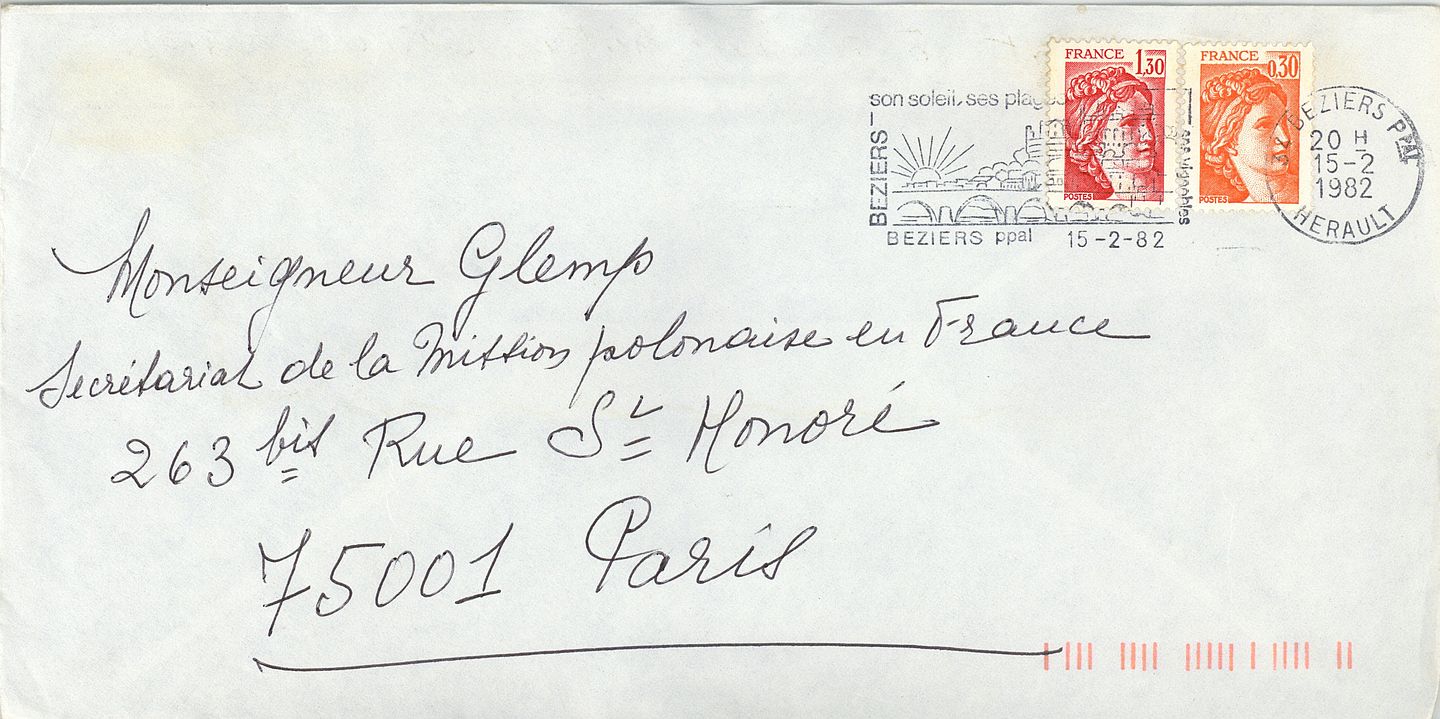 son soleil, ses plages
BEZIERS
ses vignobles
BEZIERS ppal 15-2-82
FRANCE 1,30
POSTES
FRANCE 0,30
POSTES
BEZIERS PPAL
20 H
15-2
1982
HERAULT
Monseigneur Glemp
Secrétariat de la Mission polonaise en France
263 bis Rue St Honoré
75001 Paris